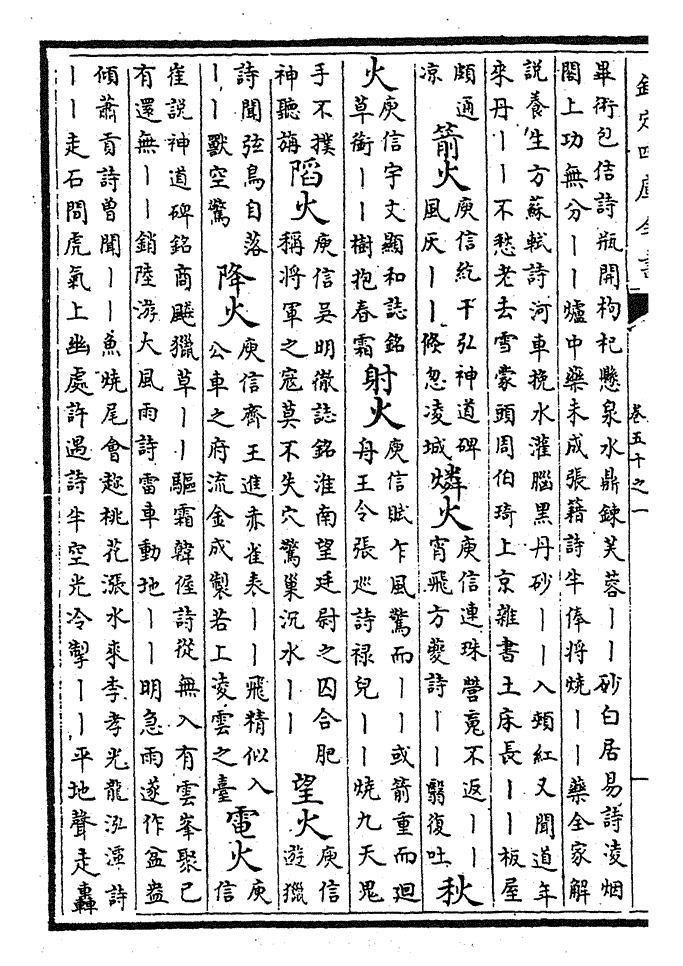 欽定四庫全書
卷五十之一
畢術包佶詩瓶開枸杞懸泉水鼎鍊芙蓉丨丨砂白居易詩凌烟
閣上功無分丨丨爐中藥未成張籍詩半俸將燒丨丨藥全家解
說養生方蘇軾詩河車挽水灌腦黑丹砂丨丨入頰紅又聞道年
來丹丨丨不愁老去雪蒙頭周伯琦上京雜書土床長丨丨板屋
頗通
凉
箭火
庾信紇干弘神道碑
風灰丨丨倐忽凌城
燐火
庾信連珠營䰟不返丨丨
宵飛方夔詩丨丨翳復吐
秋
火
庾信宇文顯和誌銘
草衡丨丨樹抱春霜
射火
庾信賦乍風驚而丨丨或箭重而廻
舟王令張廵詩禄兒丨丨燒九天鬼
手不撲
神聽旃
䧟火
庾信吳明徹誌銘淮南望廷尉之囚合肥
稱將軍之寇莫不失穴驚巢沉水丨丨
望火
庾信
遊獵
詩聞弦鳥自落
丨丨獸空驚
降火
庾信齊王進赤雀表丨丨飛精似入
公車之府流金成製若上凌雲之臺
電火
庾
信
崔說神道碑銘商飈獵草丨丨驅霜韓偓詩從無入有雲峯聚已
有還無丨丨銷陸游大風雨詩雷車動地丨丨明急雨遂作盆盎
傾蕭貢詩曽聞丨丨魚燒尾會趂桃花漲水來李孝光龍泓潭詩
丨丨走石鬭虎氣上幽處許遇詩半空光冷掣丨丨平地聲走轟